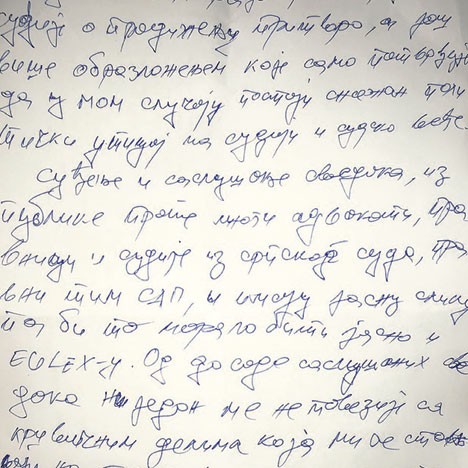 судији о продужењу притвора, а још
више образложењем које само потврђује
да у мом случају постоји снажан поли
тички утицај на судију и судско веће.
Суђење и саслушање сведока, из
публике прате многи адвокати, пра
вници и судије из српског суда, пра
вни тим САД, и имају јасну слику
па би то морало бити јасно и
EULEX-у. Од до сада саслушаних све
дока ни један ме не повезује са
кривичним делима која ми се став